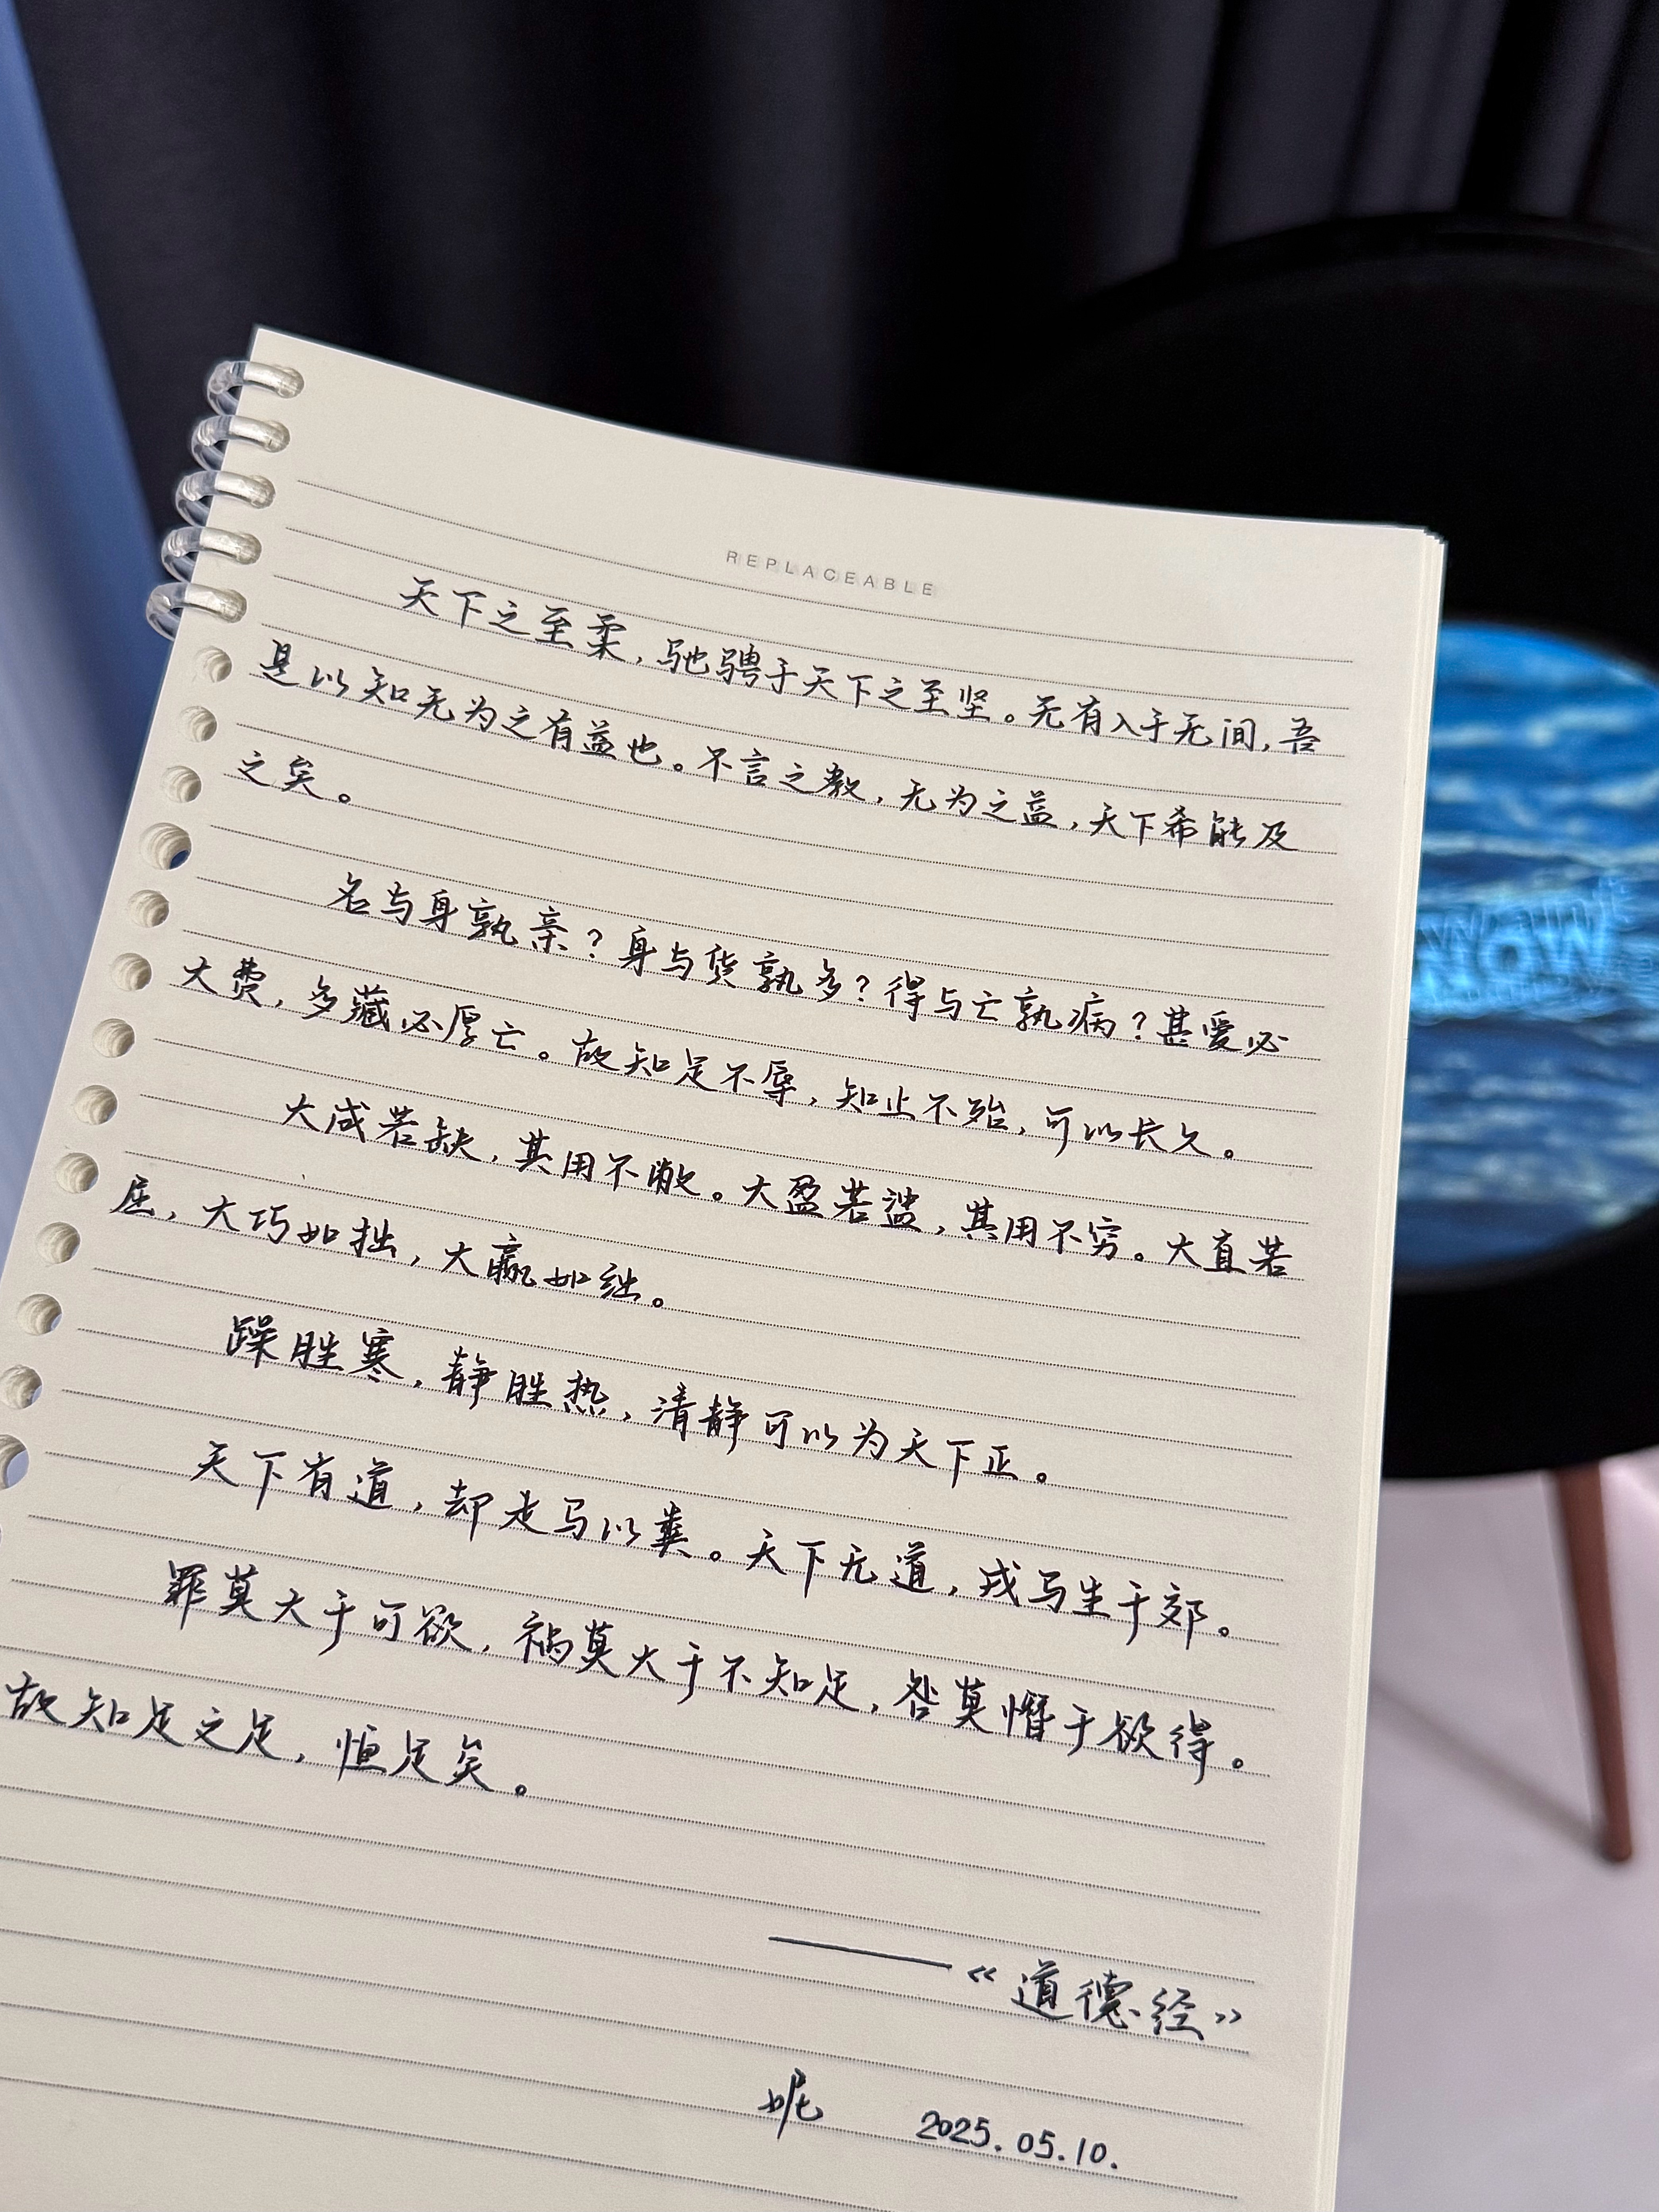 REPLACEABLE
天下之至柔，驰骋于天下之至坚。无有入于无间，吾
是以知无为之有益也。不言之教，无为之益，天下希能及
之矣。
名与身孰亲？身与货孰多？得与亡孰病？甚爱必
大费，多藏必厚亡。故知足不辱，知止不殆，可以长久。
大成若缺，其用不敝。大盈若盅，其用不穷。大直若
屈，大巧如拙，大赢如绌。
躁胜寒，静胜热，清静可以为天下正。
天下有道，却走马以粪。天下无道，戎马生于郊。
罪莫大于可欲，祸莫大于不知足，咎莫憯于欲得。
故知足之足，恒足矣。
——《道德经》
妮 2025.05.10.
NOW